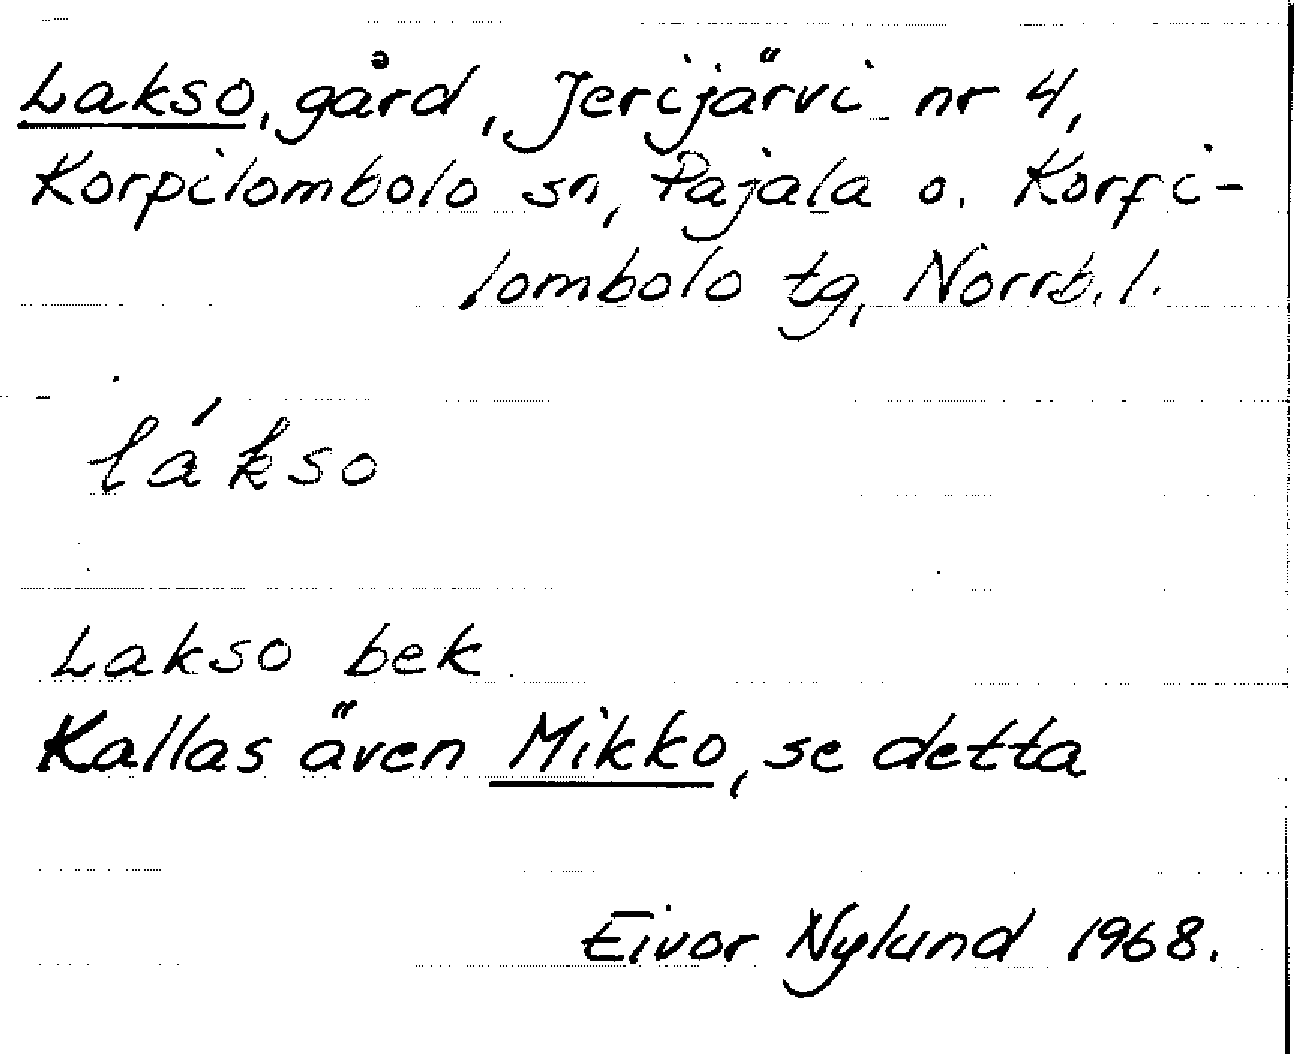 Lakso, gård, Jerijärvi nr 4,
Korpilombolo sn, Pajala o. Korpi-
lombolo tg, Norrb. l.
lákso
Lakso bek.
Kallas även Mikko, se detta
Eivor Nylund 1968.